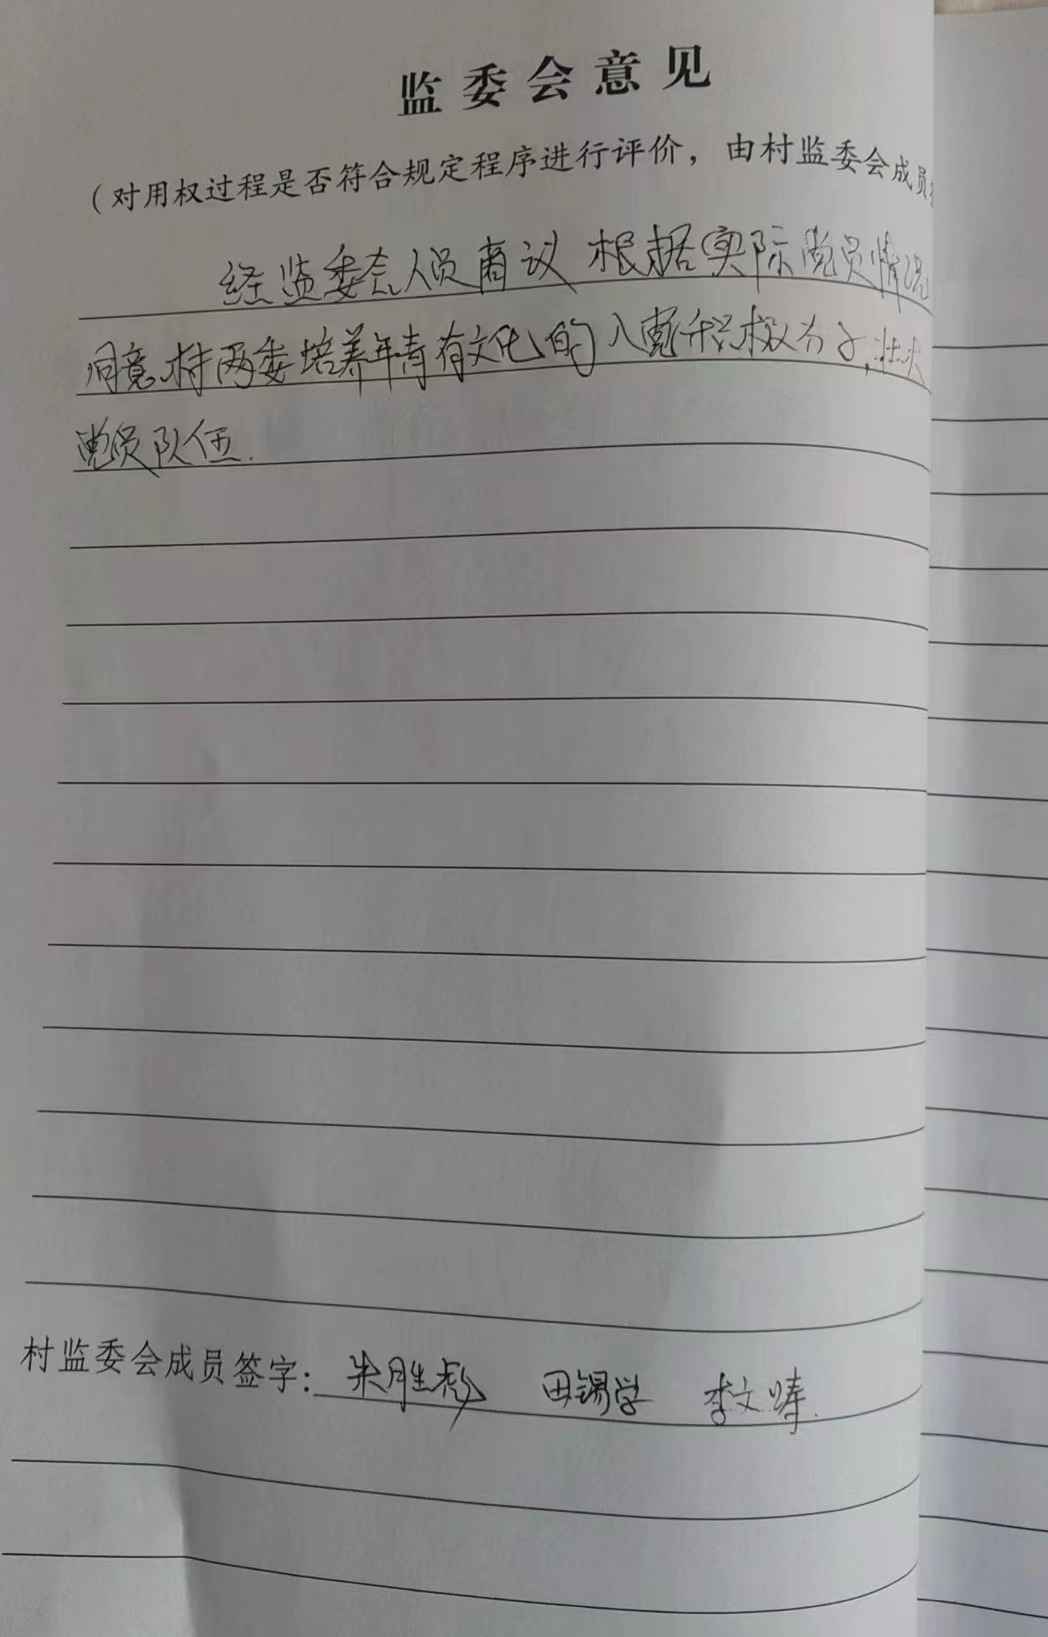 监委会意见
（对用权过程是否符合规定程序进行评价，由村监委会成员
经监委会人员商议 根据实际党员情况
同意村两委培养年青有文化的入党积极分子，壮大
党员队伍.
村监委会成员签字： 朱胜彪 田锡学 李文涛.